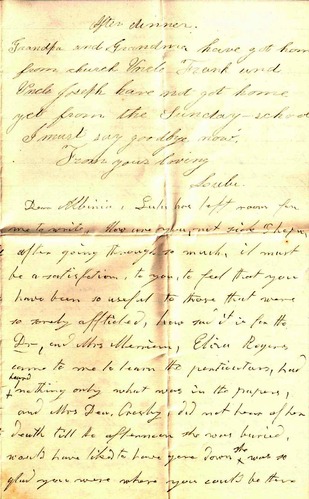 After dinner.
Grandpa and Grandma have got home
from church Uncle Frank and
Uncle Joseph have not got home
yet from the Sunday-school
I must say goodbye now.
From your loving
Lulu.
Dear Albinia, Lulu has left room for
me to write. How are you, not sick I hope,
after going through so much, it must
be a satisfaction to you, to feel that you
have been so useful to those that were
so sorely afflicted, how sad it is for the
Dr, and Mrs Merriam, Eliza Rogers
came to me to learn the particulars, had
heard nothing only what was in the papers,
and Mrs Dea, Crosby, did not hear of her
death till the afternoon she was buried,
would have liked to have gone down she was so
glad you were where you could be there